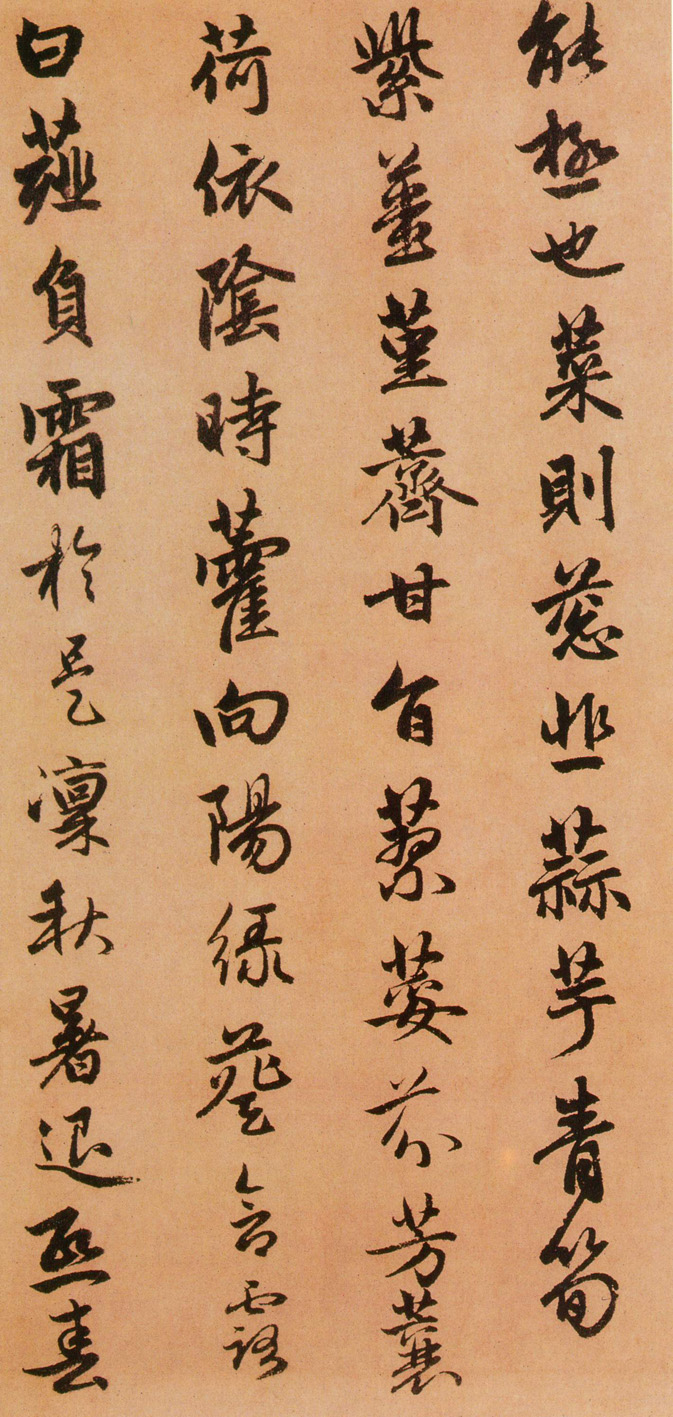 能極也菜則葱韭蒜芋青筍
紫薑菫薺甘旨蓼荽芬芳蘘
荷依陰時藿向陽緑葵含露
白薤負霜於是凜秋暑退熙春